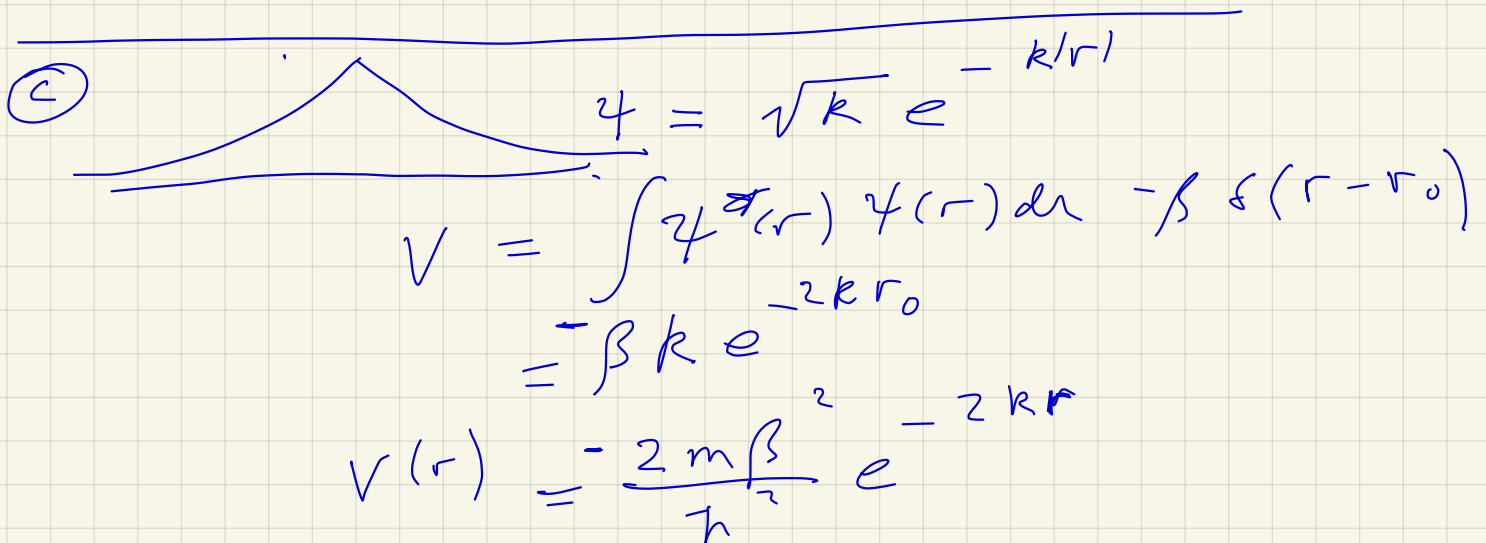 ⓒ ψ = √k e^{-k|r|}
V = ∫ψ*(r) ψ(r) dr -β δ(r - r₀)
= -β k e^{-2kr₀}
V(r) = -\frac{2mβ²}{ħ²} e^{-2kr}